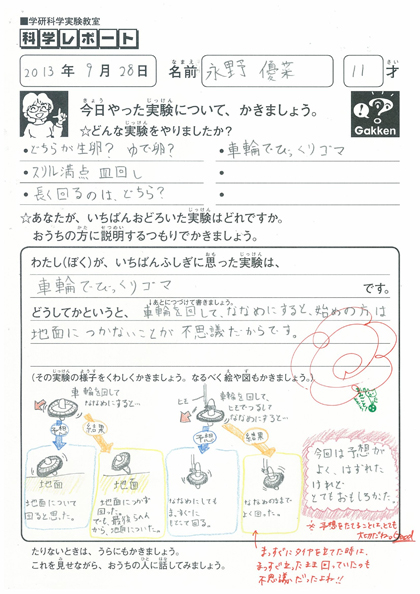 ■学研科学実験教室
科学レポート
2013年 9月 28日 名前 永野 優菜 11才
今日やった実験について、かきましょう。
☆どんな実験をやりましたか?
Gakken
・どちらが生卵? ゆで卵? ・車輪でびっくりゴマ
・スリル満点 皿回し ・
・長く回るのは、どちら? ・
☆あなたが、いちばんおどろいた実験はどれですか。
おうちの方に説明するつもりでかきましょう。
わたし(ぼく)が、いちばんふしぎに思った実験は、
車輪でびっくりゴマ です。
↓あとにつづけて書きましょう。
どうしてかというと、車輪を回して、ななめにすると、始めの方は
地面につかないことが不思議だからです。
(その実験の様子をくわしくかきましょう。なるべく絵や図もかきましょう。)
車輪を回して
ななめにすると…
予想
結果
地面
地面について
回ると思った。
地面
地面につかず
回った。
でも、最後らへん
から、地面についた。
車輪を回して、
ひもでつるして
ななめにすると…
ひも
予想
結果
ななめにしても
まっすぐに
もどって回る。
ななめのままで
よく回った。
今回は予想が
よく、はずれた
けれど
とてもおもしろかった。
予想をたてることは、とても
大切だね。Good
まっすぐにタイヤを立てた時は、
まっすぐ立ったまま回っていたのも
不思議だったよね!!
たりないときは、うらにもかきましょう。
これを見せながら、おうちの人に話してみましょう。